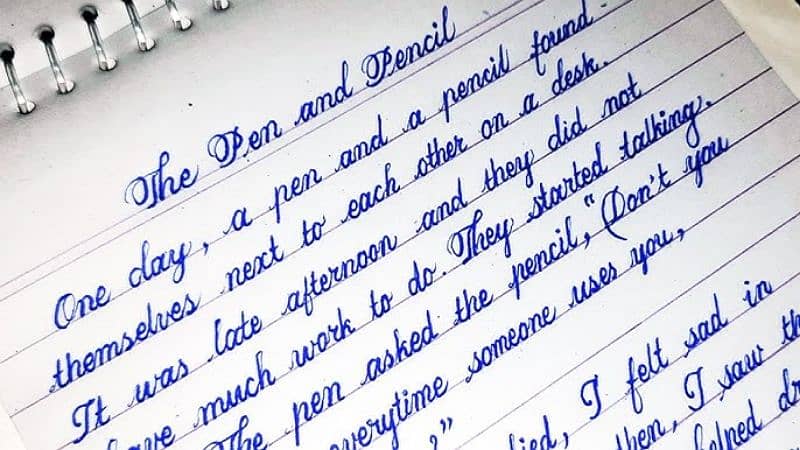 The Pen and Pencil
One day, a pen and a pencil found
themselves next to each other on a desk.
It was late afternoon and they did not
have much work to do. They started talking.
The pen asked the pencil, "Don't you
everytime someone uses you,
," I felt sad in
then, I saw
helped